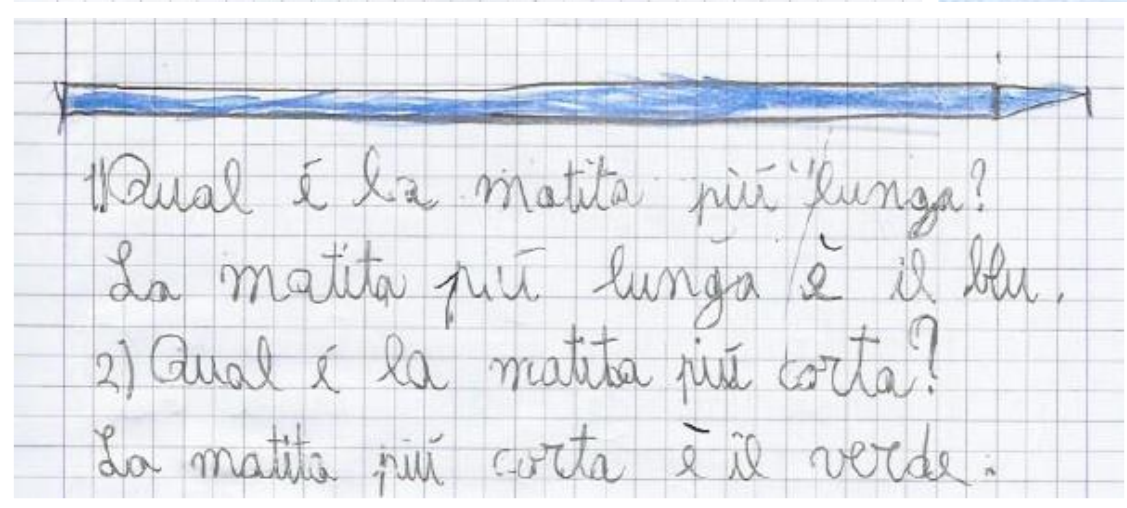 1) Qual é la matita piú lunga?
La matita piú lunga è il blu.
2) Qual é la matita piú corta?
La matita piú corta è il verde.